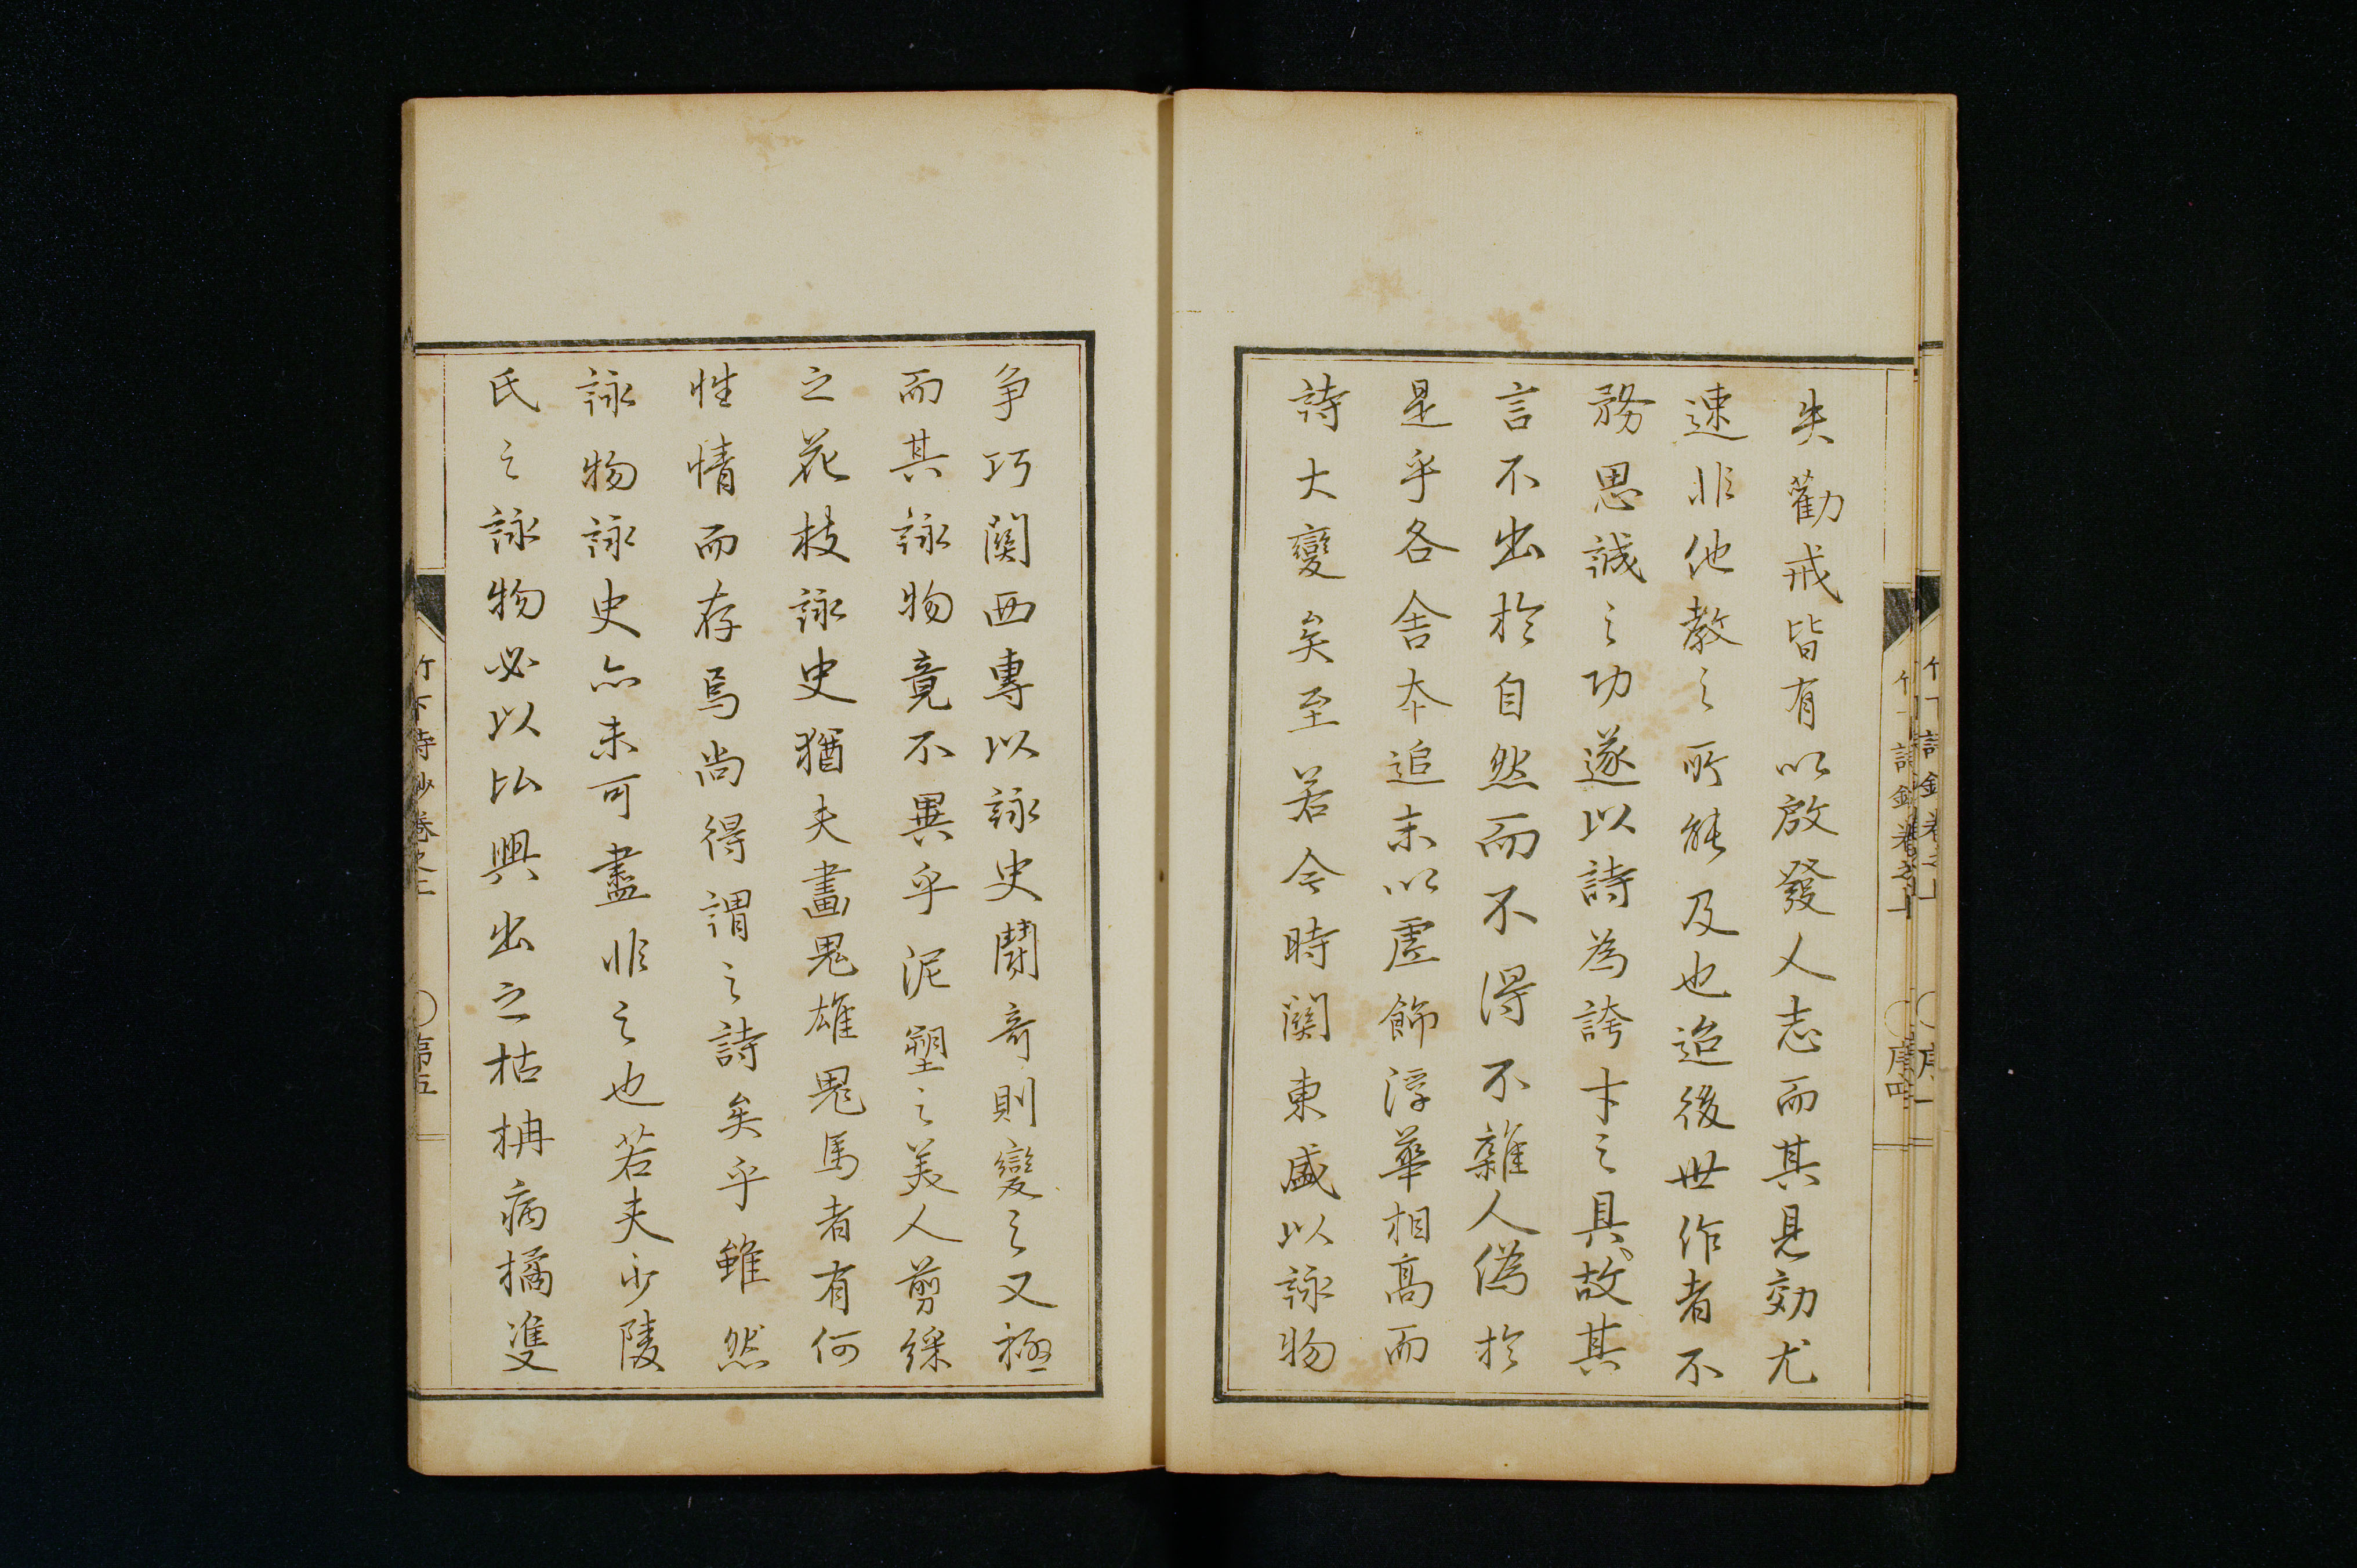 失勸戒皆有以啟發人志而其見効尤
速非他教之所能及也迨後世作者不
務思誠之功遂以詩為誇才之具故其
言不出於自然而不得不雜人偽於
是乎各舍本追末以虛飾浮華相高而
詩大變矣至若今時関東盛以詠物
争巧関西專以詠史鬪奇則變之又極
而其詠物竟不異乎泥塑之美人剪綵
之花枝詠史猶夫畫鬼雄鬼馬者有何
性情而存焉尚得謂之詩矣乎雖然
詠物詠史亦未可盡非之也若夫少陵
氏之詠物必以比興出之枯柟病橘隻
竹下詩鈔卷之上